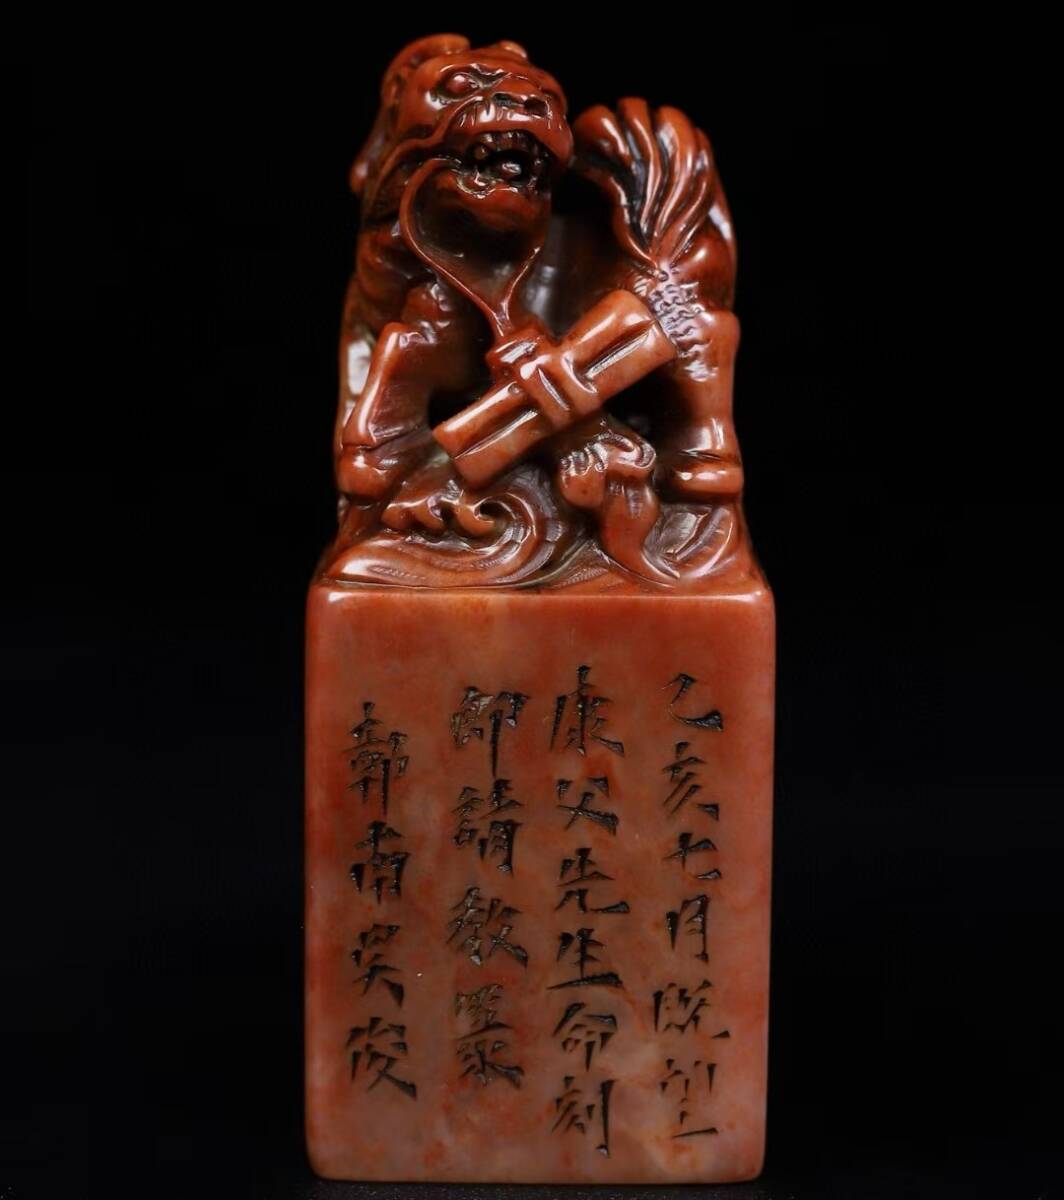 乙亥七月既望
康父先生命刻
即請教
鄣南吳俊